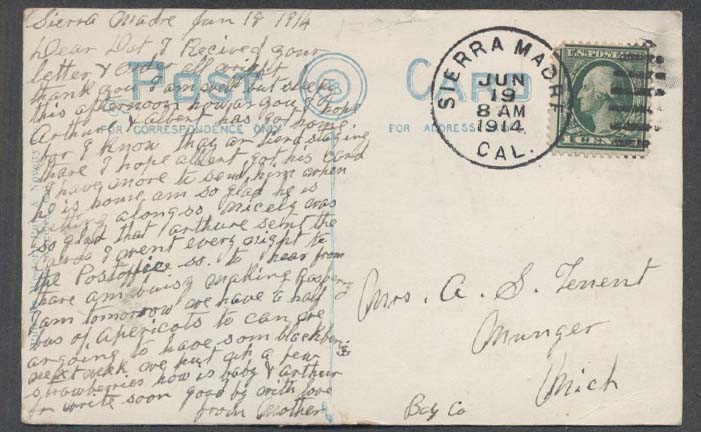 Sierra Madre Jun 18 1914
Dear Dot I Recived your
letter & order all wright
thank you I am well but
this afternoon how ar you I hope
Arthur & albert has got home
for I know they ar tierd staying
thare I hope albert got his card
I have more to send him when
he is home am so glad he is
gitting along so nicely was
so glad that arthure sent the
cards I went every night to
the Postoffice so to hear from
thare am busy making
jam tomorrow we have a half
of Apericots to can we
ar going to have som blackber
next week we put up a few
strawberries how is baby & arthur
write soon good by with love
from Mother
POST CARD
FOR CORRESPONDENCE ONLY
FOR ADDRESS
SIERRA MADRE
JUN
19
8 AM
1914
CAL.
U.S. POSTAGE
1 CENT
Mrs. A. S. Tenent
Munger
Mich
Bay Co